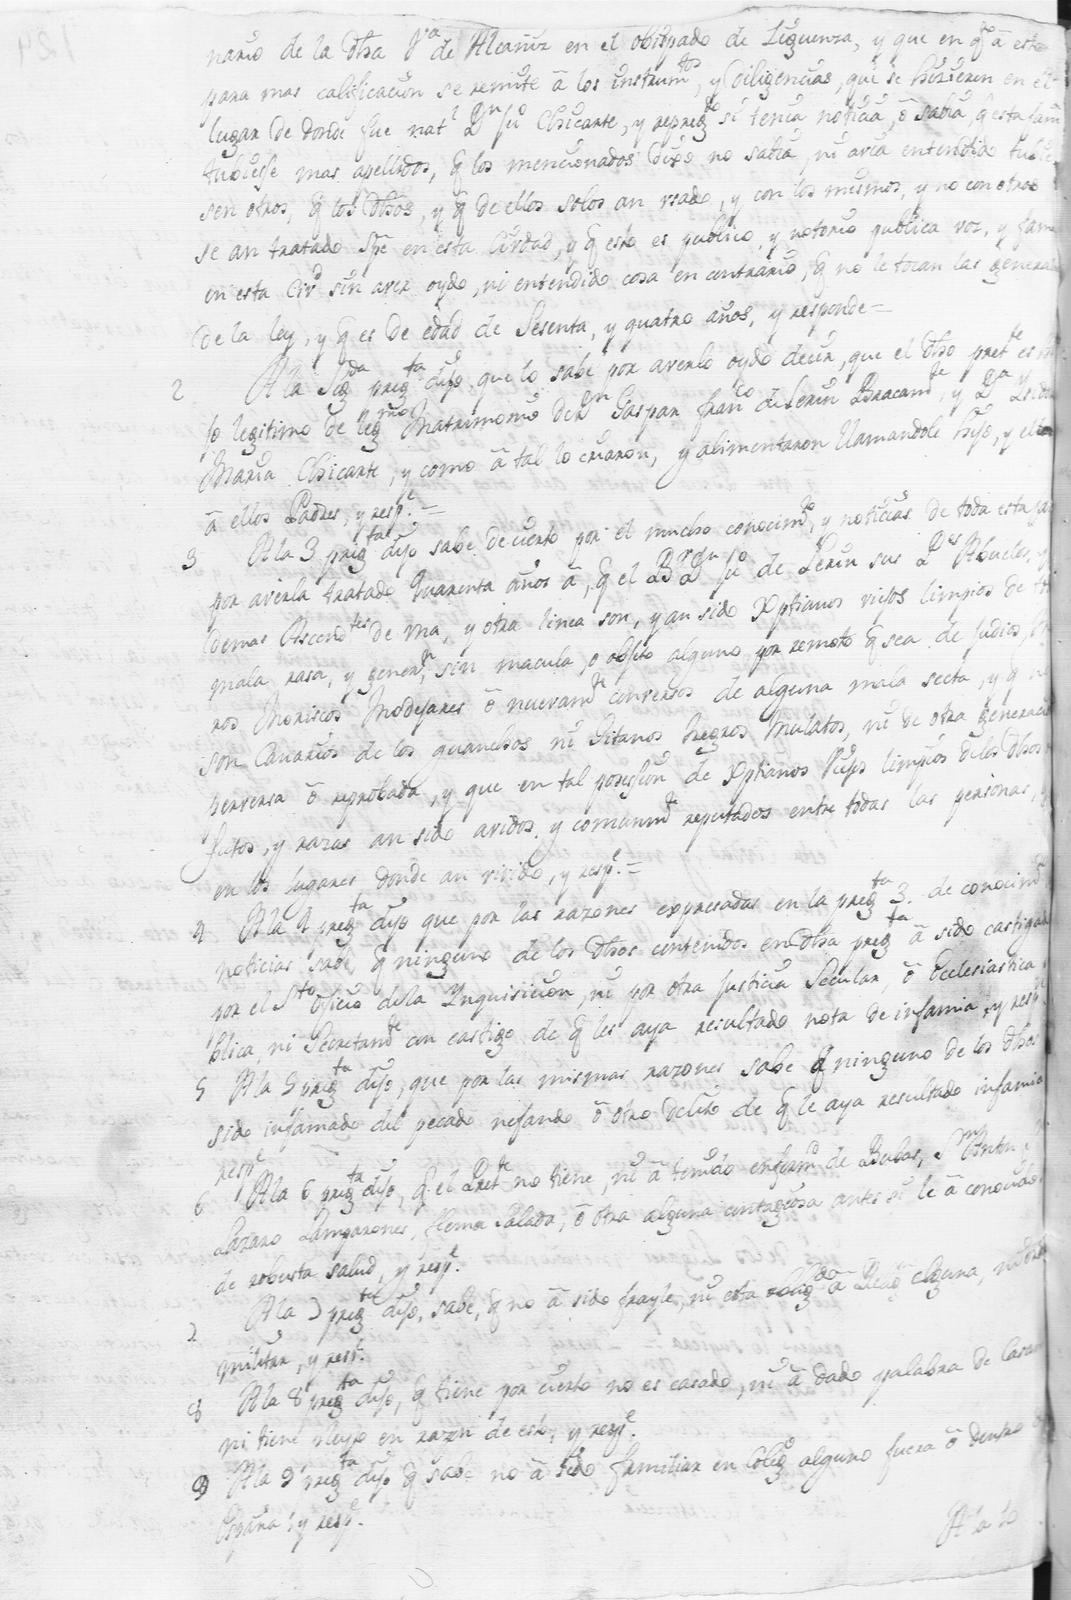 nario de la dha Va de Alcañiz en el obispado de Siguenza, y que en qto â esto
para mas calificacion se remite â los instrumtos, y diligencias, que se hizieren en el
lugar de donde fue natl Dn Chicarte, y repregdo si tenia noticia, ô sabia, q esta fam
tubiesse mas apellidos, q los mencionados dixo no sabia, ni avia entendido tubie
sen otros, q los dhos, y q de ellos solos an vsado, y con los mismos, y no con otros
se an tratado Spe en esta Ciudad, y q esto es publico, y notorio publica voz, y fama
en esta Ciud sin aver oydo, ni entendido cosa en contrario, q no le tocan las general
de la ley, y q es de edad de Sesenta, y quatro años, y responde =
2 A la Segda pregta dijo que lo sabe por averlo oydo decir, que el dho prete es hi
jo legitimo de legmo Matrimonio de Dn Gaspar Franco de Lerin Bracamte, y Da
Maria Chicarte, y como â tal lo criaron, y alimentaron llamandole hijo, y el
â ellos Padres, y respe. =
3 A la 3 pregta dijo sabe de cierto por el mucho conocimto, y noticias de toda esta
por averla tratado quarenta años â, q el de Lerin sus Pes Abuelos, y
demas Ascendtes de vna, y otra linea son, y an sido Xptianos viejos limpios de
mala raza, y generon, sin macula, o obsto alguno por remoto q sea de Judios,
ros Moriscos Modejares ô nuevamte conversos de alguna mala secta, y q n
son Canarios de los guanchos ni Gitanos Negros Mulatos, ni de otra generacio
perversa ô reprobada, y que en tal possesion de Xptianos Viejos limpios de los dhos
futos, y razas an sido avidos, y comunmte reputados entre todas las personas, y
en los lugares donde an vivido, y respe. =
4 A la 4 pregta dijo que por las razones expresadas en la pregta 3. de conocimto
noticias sabe q ninguno de los dhos contenidos en dha pregta â sido castigad
por el Sto Oficio de la Ynquisicion, ni por otra Justicia Secular, ô Ecclesiastica
blica, ni Secretamte con castigo de q les aya resultado nota de infamia, y respe
5 A la 5 pregta dijo, que por las mismas razones sabe q ninguno de los dhos
sido infamado del pecado nefando ô otro delito de q le aya resultado infamia
respe
6 A la 6 pregta dijo, q el Prete no tiene, ni â tenido enfermd de Bubas, Sn Anton
Lazaro Lamparones, flema salada, ô otra alguna contagiosa antes si le â conocido
de robusta salud, y respe.
7 A la 7 pregta dijo, sabe, q no â sido frayle, ni esta obligdo â Relign alguna, ni
militar, y respe.
8 A la 8 pregta dijo, q tiene por cierto no es casado, ni â dado palabra de Casa
ni tiene pleyto en razon de esto, y respe.
9 A la 9 pregta dijo q sabe no â sido familiar en Colego alguno fuera ô dentro
España, y respe.
A la 10